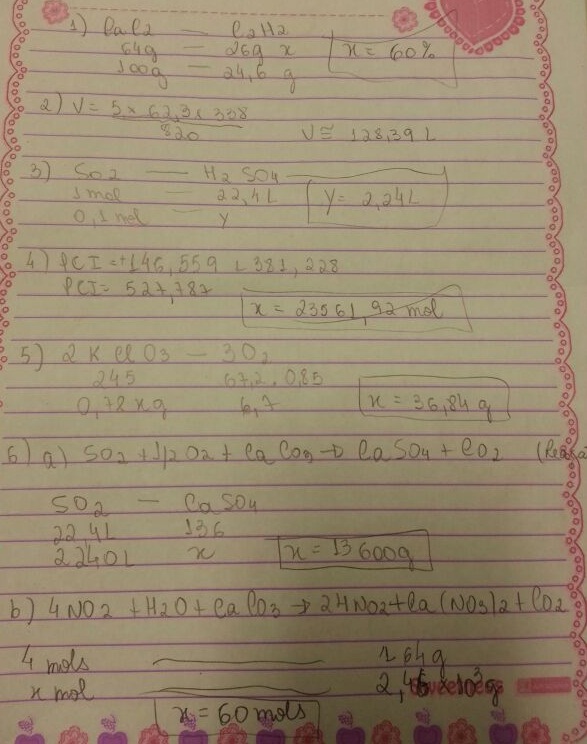 1) CaC2 — C2H2
64g — 26g x
100g — 24,6 g
x = 60%
2) V = 5 x 62,3 x 338
820
V ≅ 128,39 L
3) SO2 — H2SO4
1 mol — 22,4L
0,1 mol — y
y = 2,24L
4) PCI = +146,559 381,228
PCI = 527,787
x = 23561,92 mol
5) 2KClO3 — 3O2
245 67,2.0,85
0,78xg 6,7
x = 36,84 g
6) a) SO2 + 1/2 O2 + CaCO3 → CaSO4 + CO2
SO2 — CaSO4
22,4L 136
2240L x
x = 13600g
b) 4NO2 + H2O + CaCO3 → 24NO2 + Ca(NO3)2 + CO2
4 mols — 164g
x mol —
x = 60 mols